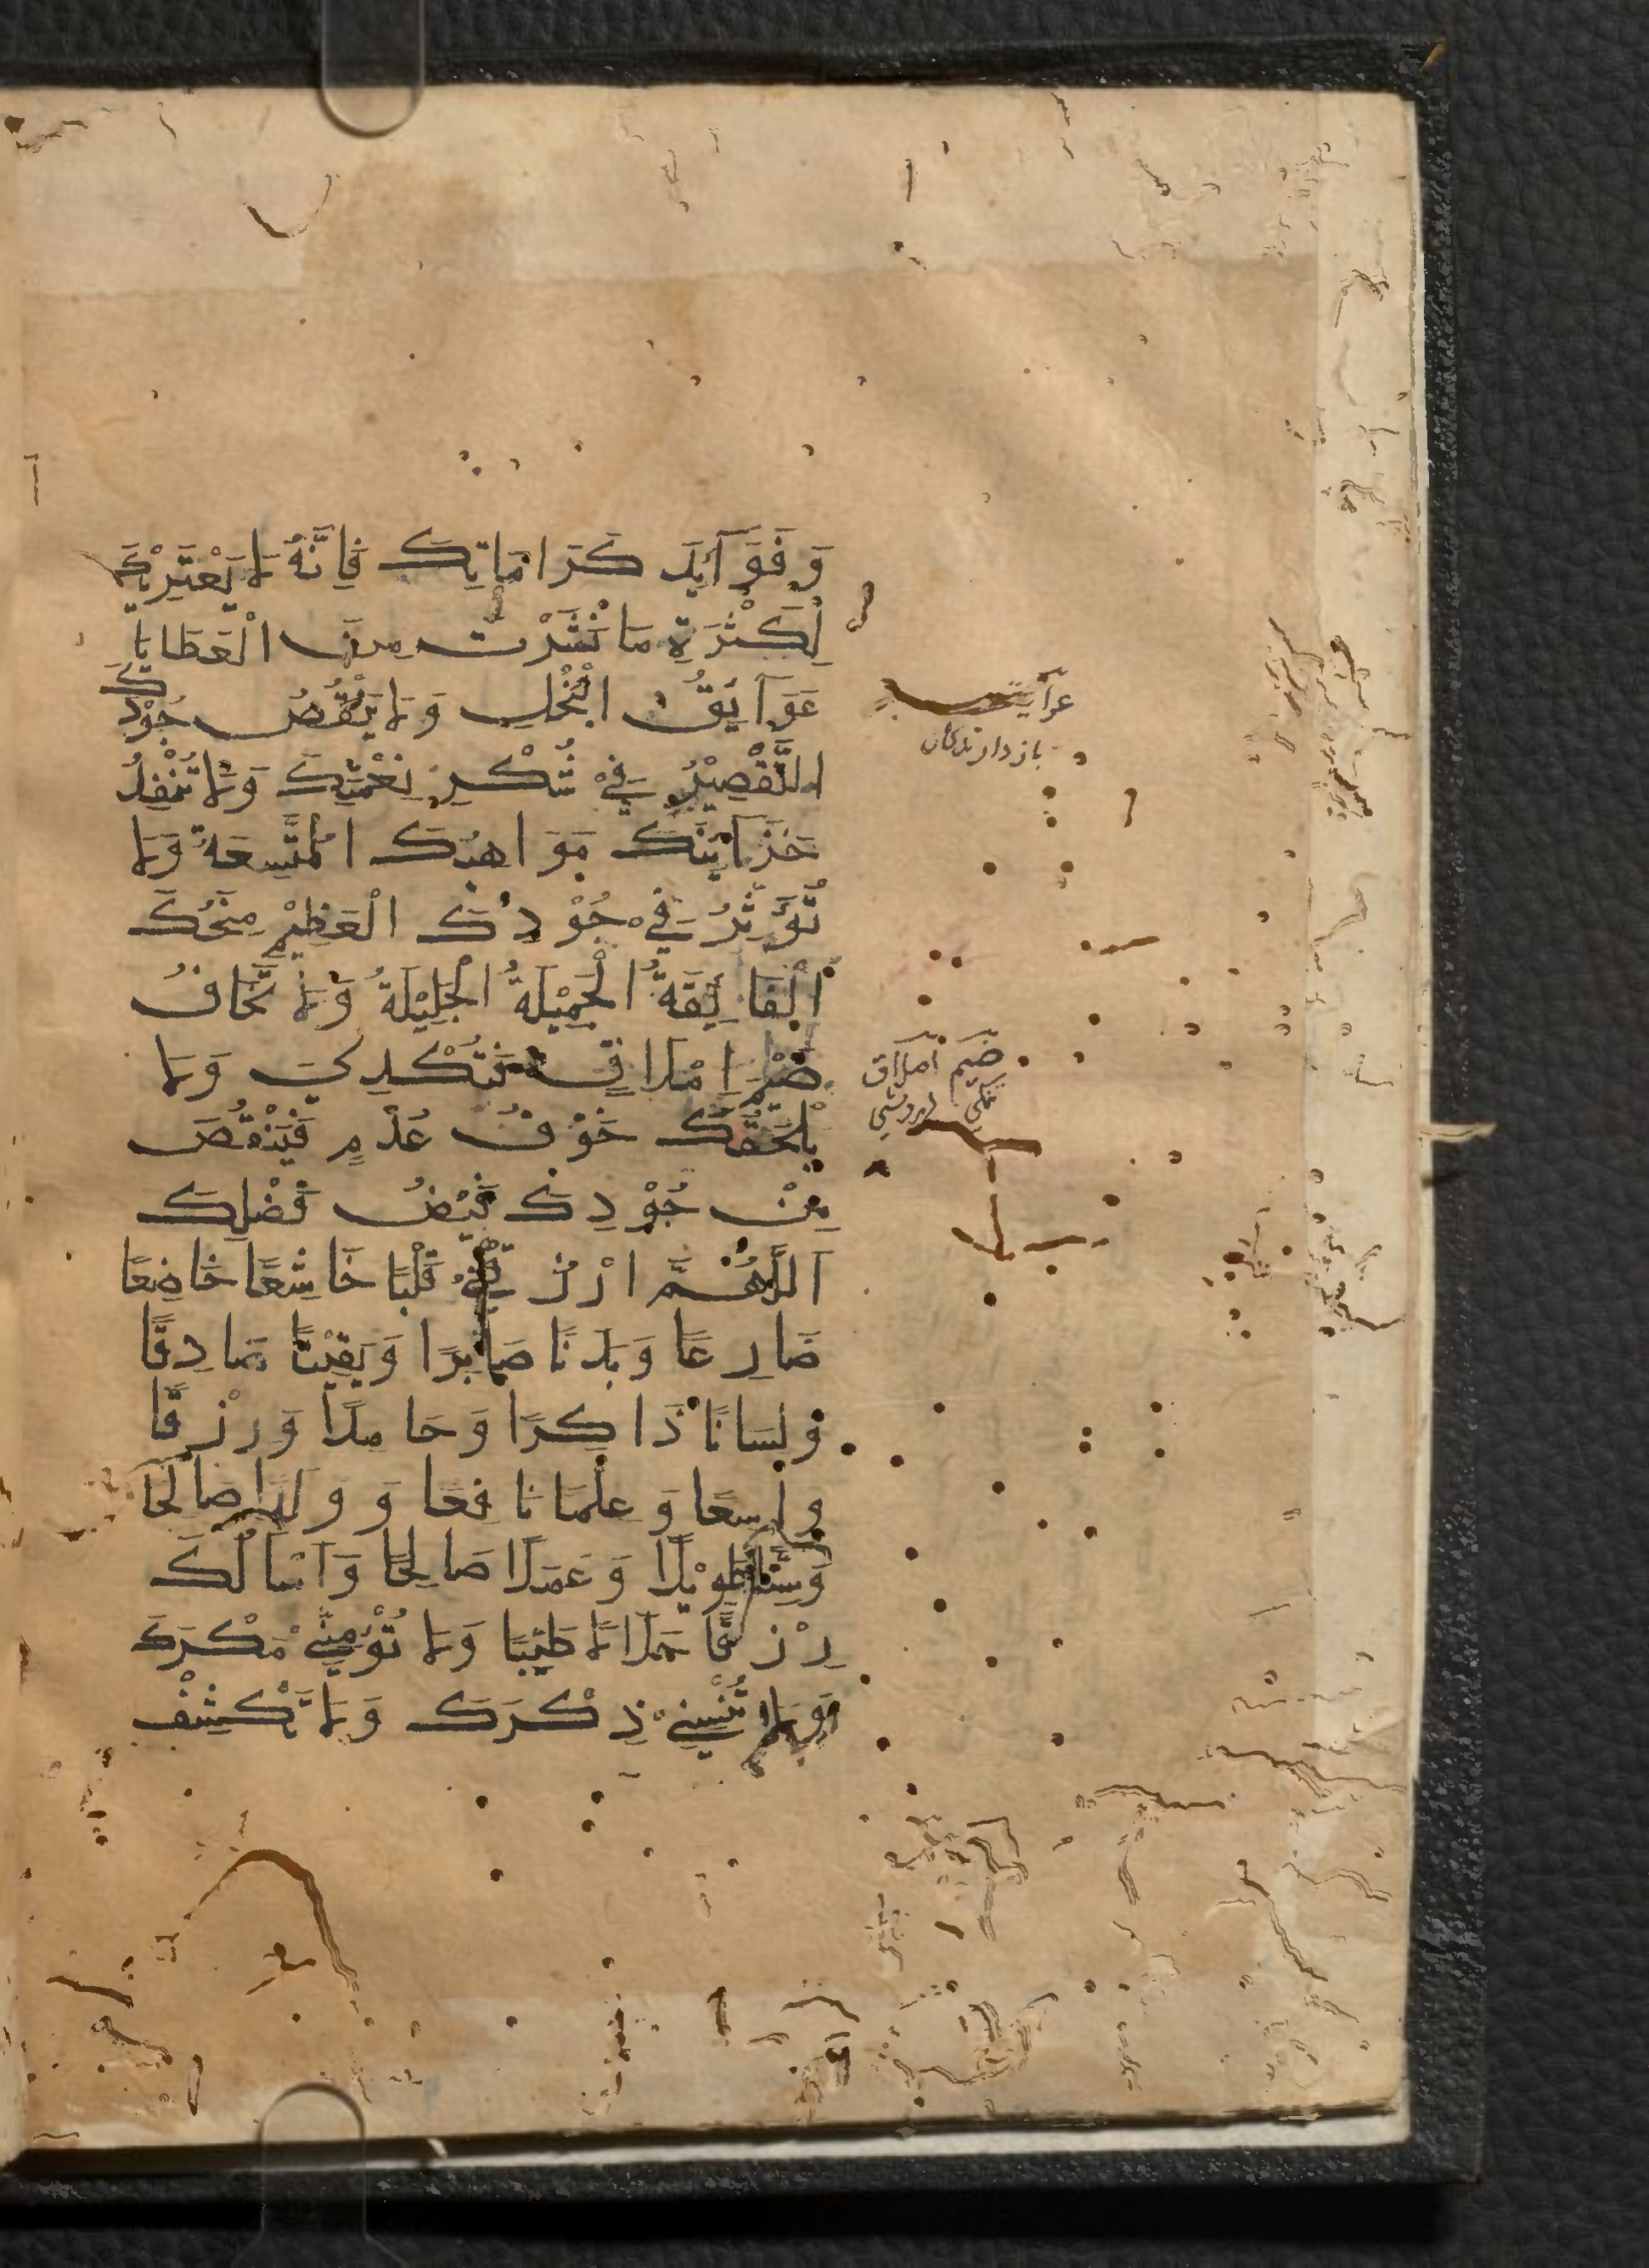 وَ فَوَآئِدَ كَرَامَاتِكَ فَاِنَّهُ لَا يَعْتَرِيْكَ
لِكَثْرَةِ مَا نَشَرْتَ مِنَ الْعَطَايَا
عَوَآئِقُ الْبُخْلِ وَلَا يَنْقُصُ جُوْدَكَ
التَّقْصِيْرُ فِيْ شُكْرِ نِعْمَتِكَ وَلَا تُنْفِدُ
خَزَآئِنَكَ مَوَاهِبُكَ الْمُتَّسِعَةُ وَلَا
تُؤَثِّرُ فِيْ جُوْدِكَ الْعَظِيْمِ مِنَحُكَ
الْفَائِقَةُ الْجَمِيْلَةُ الْجَلِيْلَةُ وَلَا تَخَافُ
ضَيْمَ اِمْلَاقٍ فَتُكْدِيَ وَلَا
يَلْحَقُكَ خَوْفُ عُدْمٍ فَيَنْقُصَ
مِنْ جُوْدِكَ فَيْضُ فَضْلِكَ
اَللّٰهُمَّ ارْزُقْنِيْ قَلْبًا خَاشِعًا خَاضِعًا
ضَارِعًا وَبَدَنًا صَابِرًا وَيَقِيْنًا صَادِقًا
وَلِسَانًا ذَاكِرًا وَحَامِدًا وَرِزْقًا
وَاسِعًا وَعِلْمًا نَافِعًا وَ وَلَدًا صَالِحًا
وَسِنًّا طَوِيْلًا وَعَمَلًا صَالِحًا وَاَسْاَلُكَ
رِزْقًا حَلَالًا طَيِّبًا وَلَا تُؤْمِنِّيْ مَكْرَكَ
وَلَا تُنْسِنِيْ ذِكْرَكَ وَلَا تَكْشِفْ
بازدارندکان
ضیم املاق